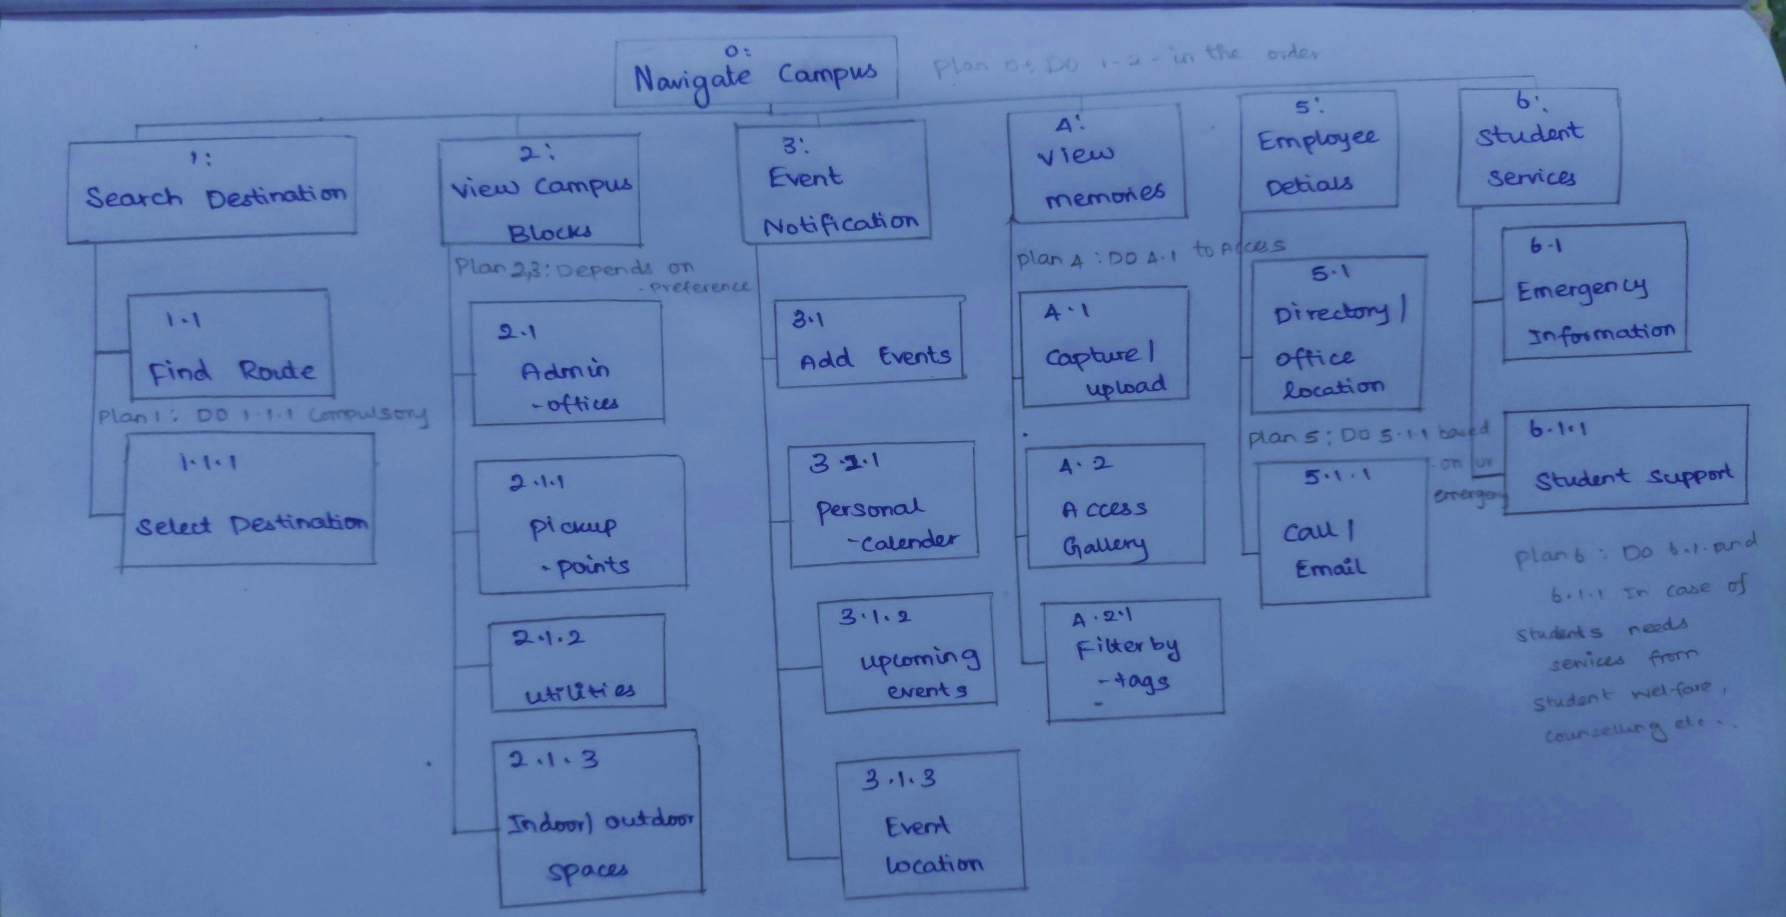 0:
Navigate Campus
Plan 0: DO 1-2- in the order
1:
Search Destination
1.1
Find Route
Plan 1: DO 1.1.1 Compulsory
1.1.1
Select Destination
2:
View Campus
Blocks
Plan 2,3: Depends on
- preference
2.1
Admin
- offices
2.1.1
Pickup
- points
2.1.2
utilities
2.1.3
Indoor/outdoor
spaces
3:
Event
Notification
3.1
Add Events
3.1.1
Personal
- calender
3.1.2
upcoming
events
3.1.3
Event
location
4:
View
memories
plan 4: DO 4.1 to Access
4.1
Capture/
upload
4.2
Access
Gallery
4.2.1
Filter by
- tags
5:
Employee
Detials
5.1
Directory/
office
location
plan 5: Do 5.1.1 based
on ur
5.1.1
Call/
Email
6:
Student
Services
6.1
Emergency
Information
6.1.1
Student Support
plan 6: Do 6.1. and
6.1.1 In case of
students needs
services from
student wel-fare,
counselling etc..